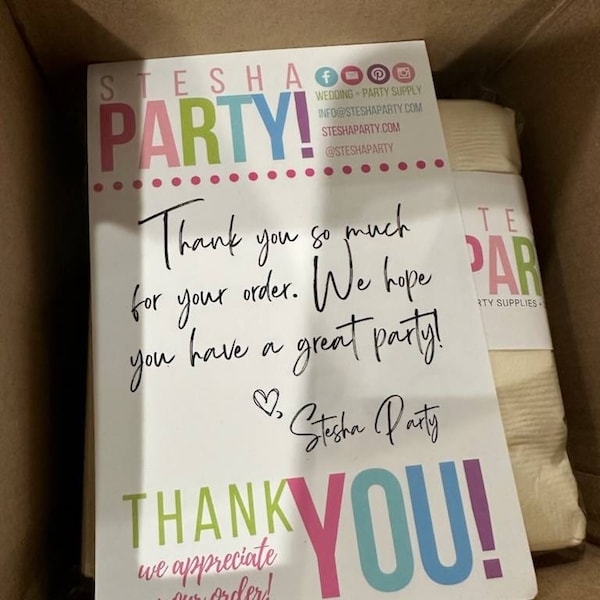 STESHA
PARTY!
WEDDING + PARTY SUPPLY
INFO@STESHAPARTY.COM
STESHAPARTY.COM
@STESHAPARTY
Thank you so much
for your order. We hope
you have a great party!
Stesha Party
THANK YOU!
we appreciate
your order!
TE
PAR
RTY SUPPLIES +